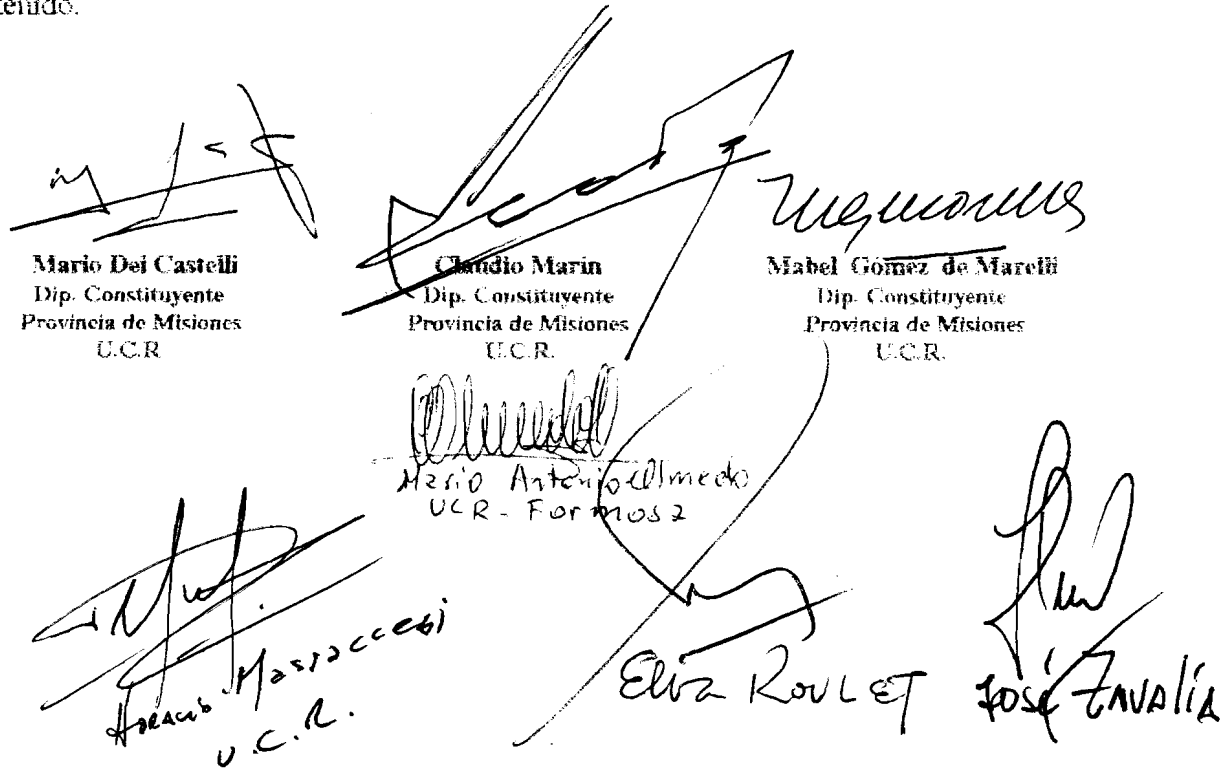 Mario Dei Castelli
Dip. Constituyente
Provincia de Misiones
U.C.R.
Claudio Marin
Dip. Constituyente
Provincia de Misiones
U.C.R.
Mabel Gómez de Marelli
Dip. Constituyente
Provincia de Misiones
U.C.R.
Mario Antonio Olmedo
UCR - Formosa
Horacio Massaccesi
U.C.R.
Elva ROULET
JOSÉ ZAVALÍA